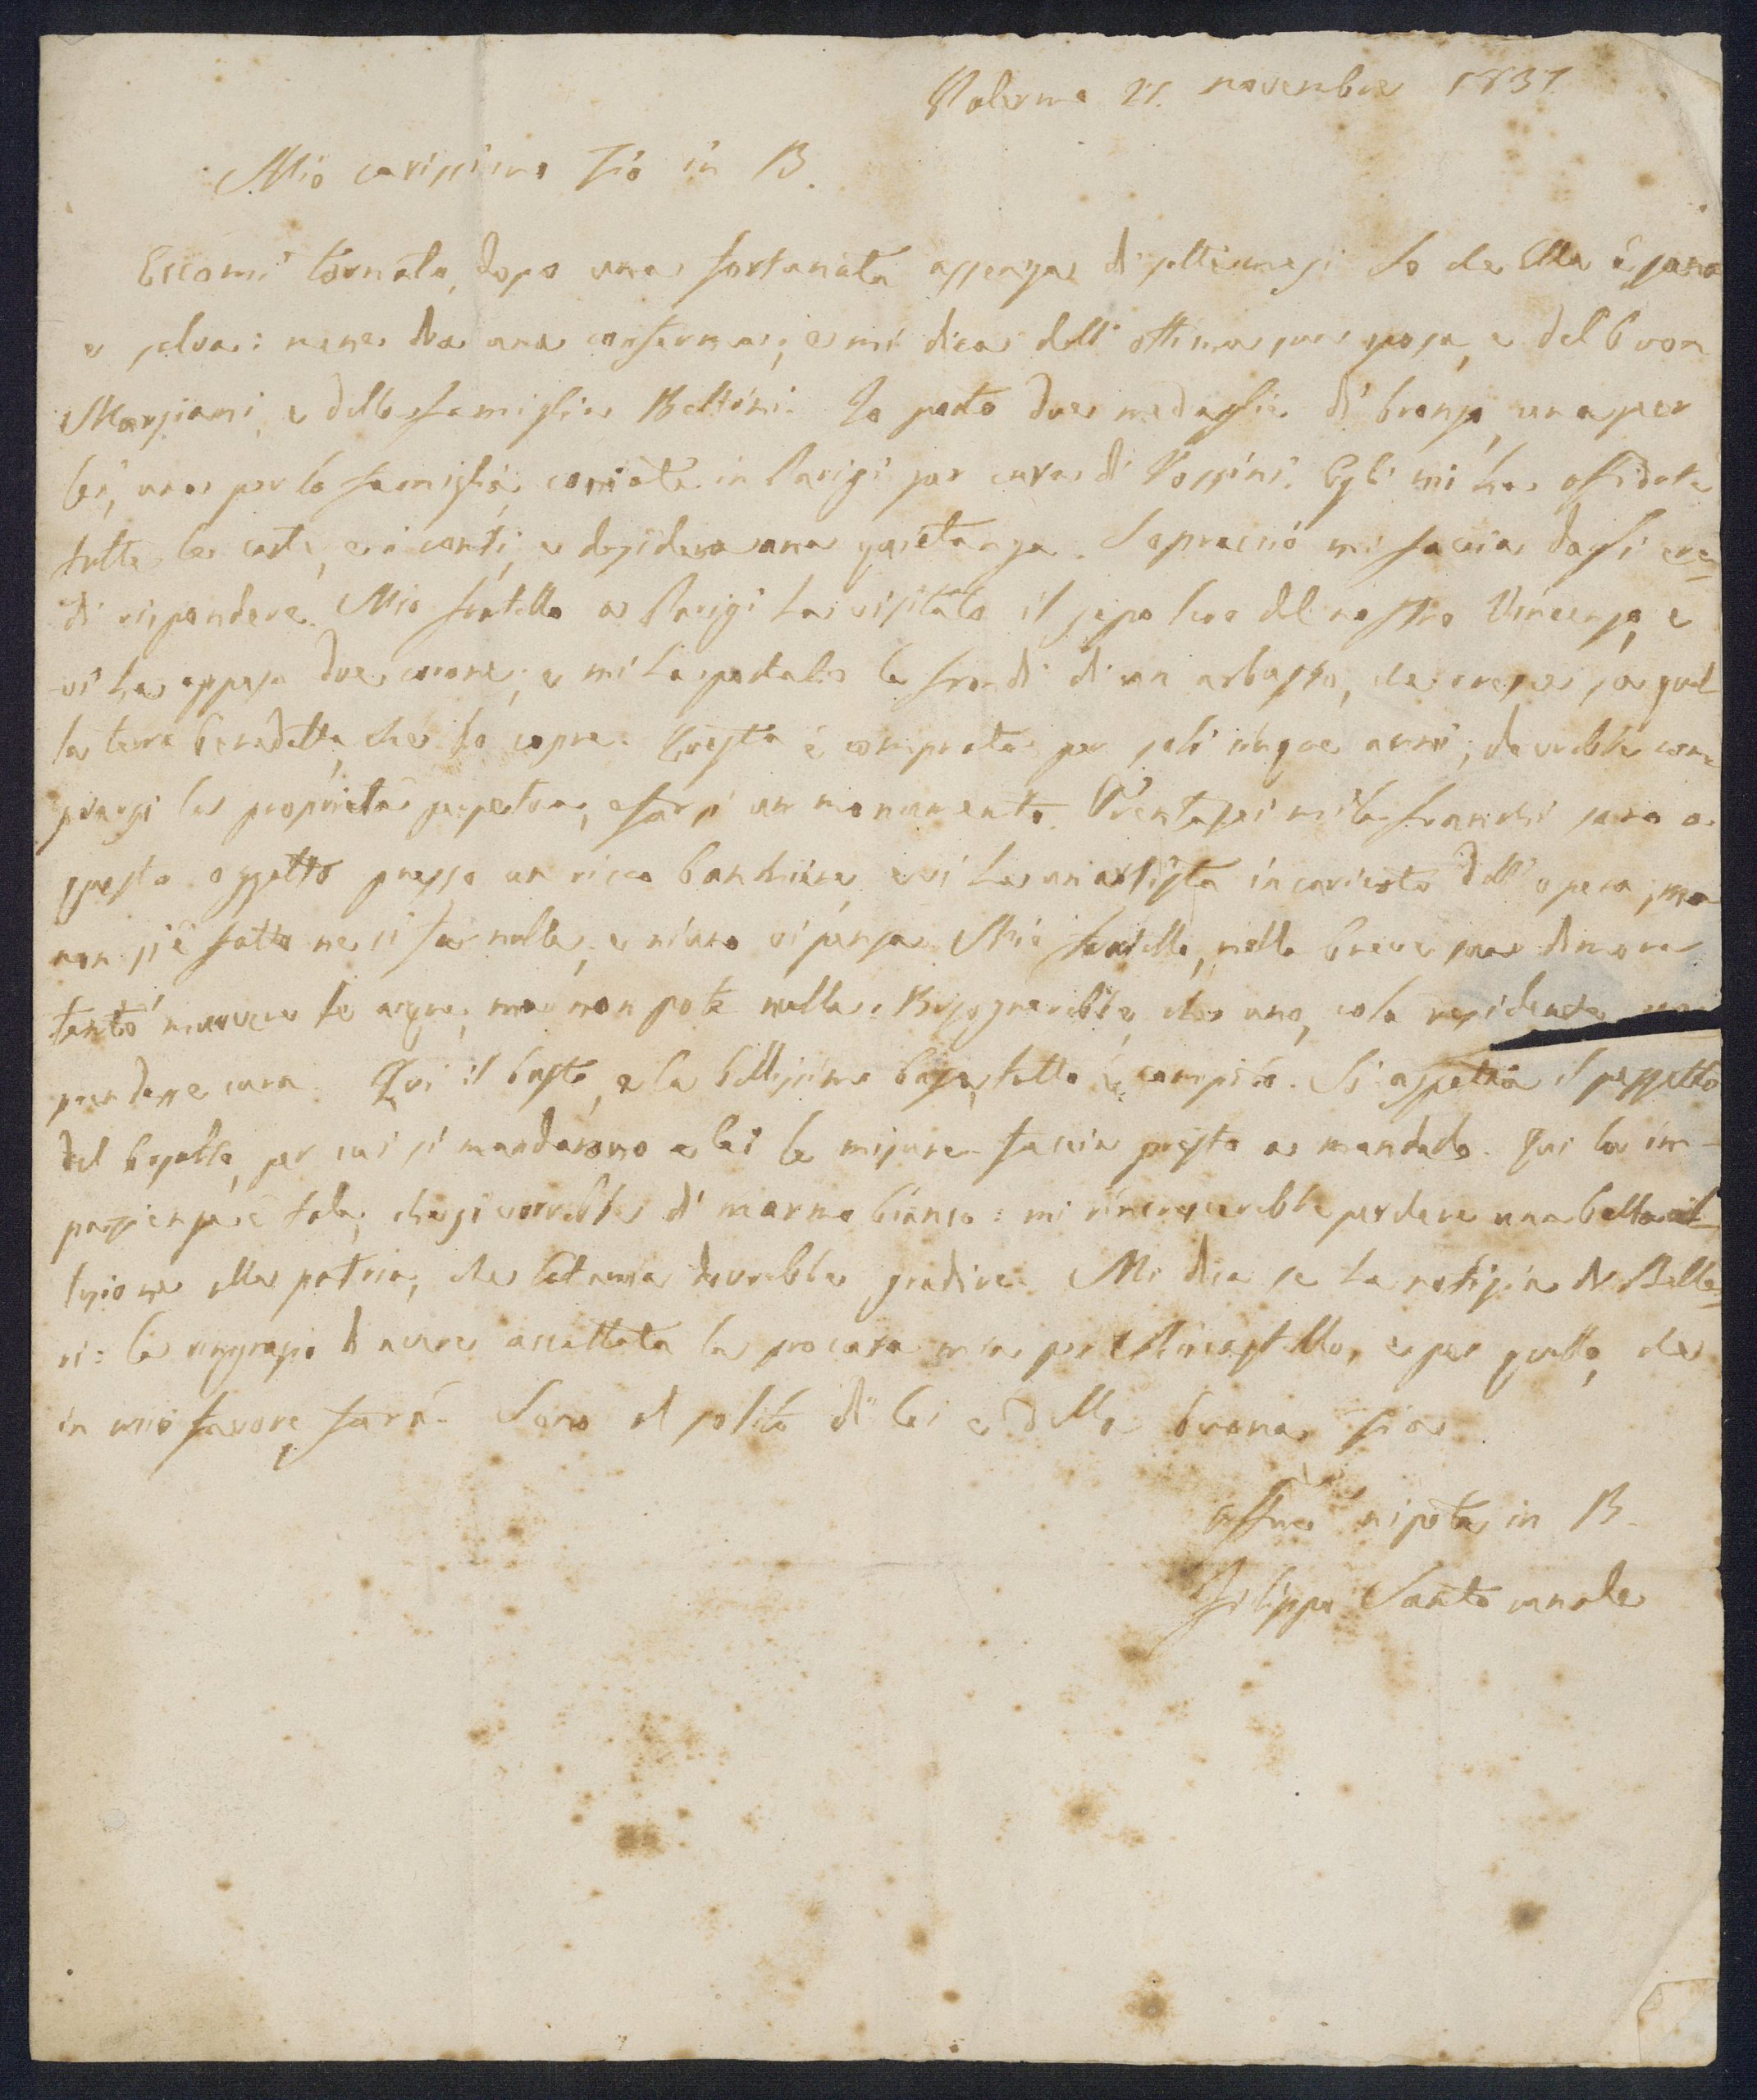 Palermo 27. novembre 1837.
Mio carissimo Zio in B.
Eccomi tornato, dopo una fortunata assenza di sette mesi. So che Ella è sana
e salva: mene dia una conferma; e mi dica dell' ottima sua sposa, e del buon
Marziani, e della famiglia Bellini. Io porto due medaglie di bronzo, una per
lei, una per la famiglia, coniate in Parigi per cura di Rossini. Egli mi ha affidate
tutte le carte, e i conti, e desidera una quietanza. Sopracciò mi faccia dagli ere=
di rispondere. Mio fratello a Parigi ha visitato il sepolcro del nostro Vincenzo, e
vi ha appeso due corone; e mi ha portato le frondi di un arbusto, che cresce su quel
la terra benedetta, che lo copre. Questa è comprata per soli cinque anni; dovrebbe com=
prarsi la proprietà perpetua, e farsi un monumento. Trentasei mila franchi sono a
questo oggetto presso un ricco banchiere, e vi ha un artista incaricato dell' opera; ma
non si è fatto ne si fa nulla, e niuno vi pensa. Mio fratello, nella breve sua dimora
tentò muovere le acque, ma non potè nulla. Bisognerebbe, che uno, colà residente, ne
prendesse cura. Qui il busto, e la bellissima base, tutto è compito. Si aspetta il pezzetto
del basalto, per cui si mandarono a lei le misure. Faccia presto a mandarlo. Qui la im-
pazienza è tale, che si vorrebbe di marmo bianco: mi rincrescerebbe perdere una bella al=
lusione alla patria, che Catania dovrebbe gradire. Mi dica se ha notizia de' Belli=
ni: la ringrazio di avere accettata la procura mia per Mircastello, e per quello, che
in mio favore farà. Sono al solito di lei e della buona zia
Affmo nipote in B.
Filippo Santocanale